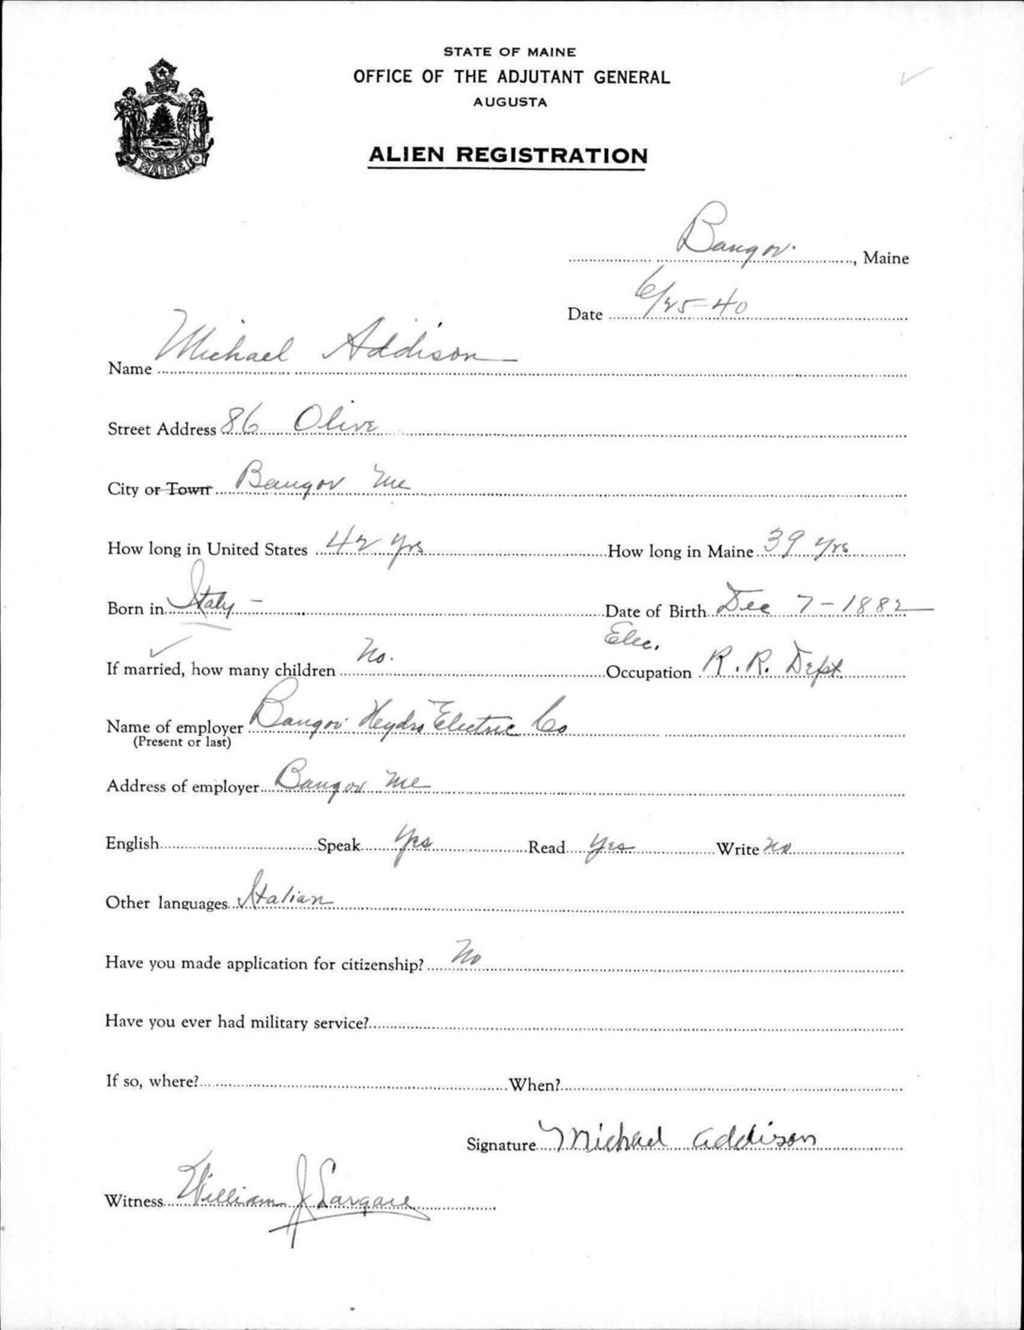 STATE OF MAINE
OFFICE OF THE ADJUTANT GENERAL
AUGUSTA
ALIEN REGISTRATION
MAINE
Bangor, Maine
Date 6/25-40
Name Michael Addison
Street Address 86 Olive
City or Town Bangor Me
How long in United States 42 yrs How long in Maine 39 yrs
Born in Italy - Date of Birth Dec 7-1882
If married, how many children No. Occupation Elec. R.R. Dept.
Name of employer Bangor Heydro Electric Co
(Present or last)
Address of employer Bangor Me
English Speak Yes Read Yes Write No
Other languages Italian
Have you made application for citizenship? No
Have you ever had military service?
If so, where? When?
Signature Michael Addison
Witness William J